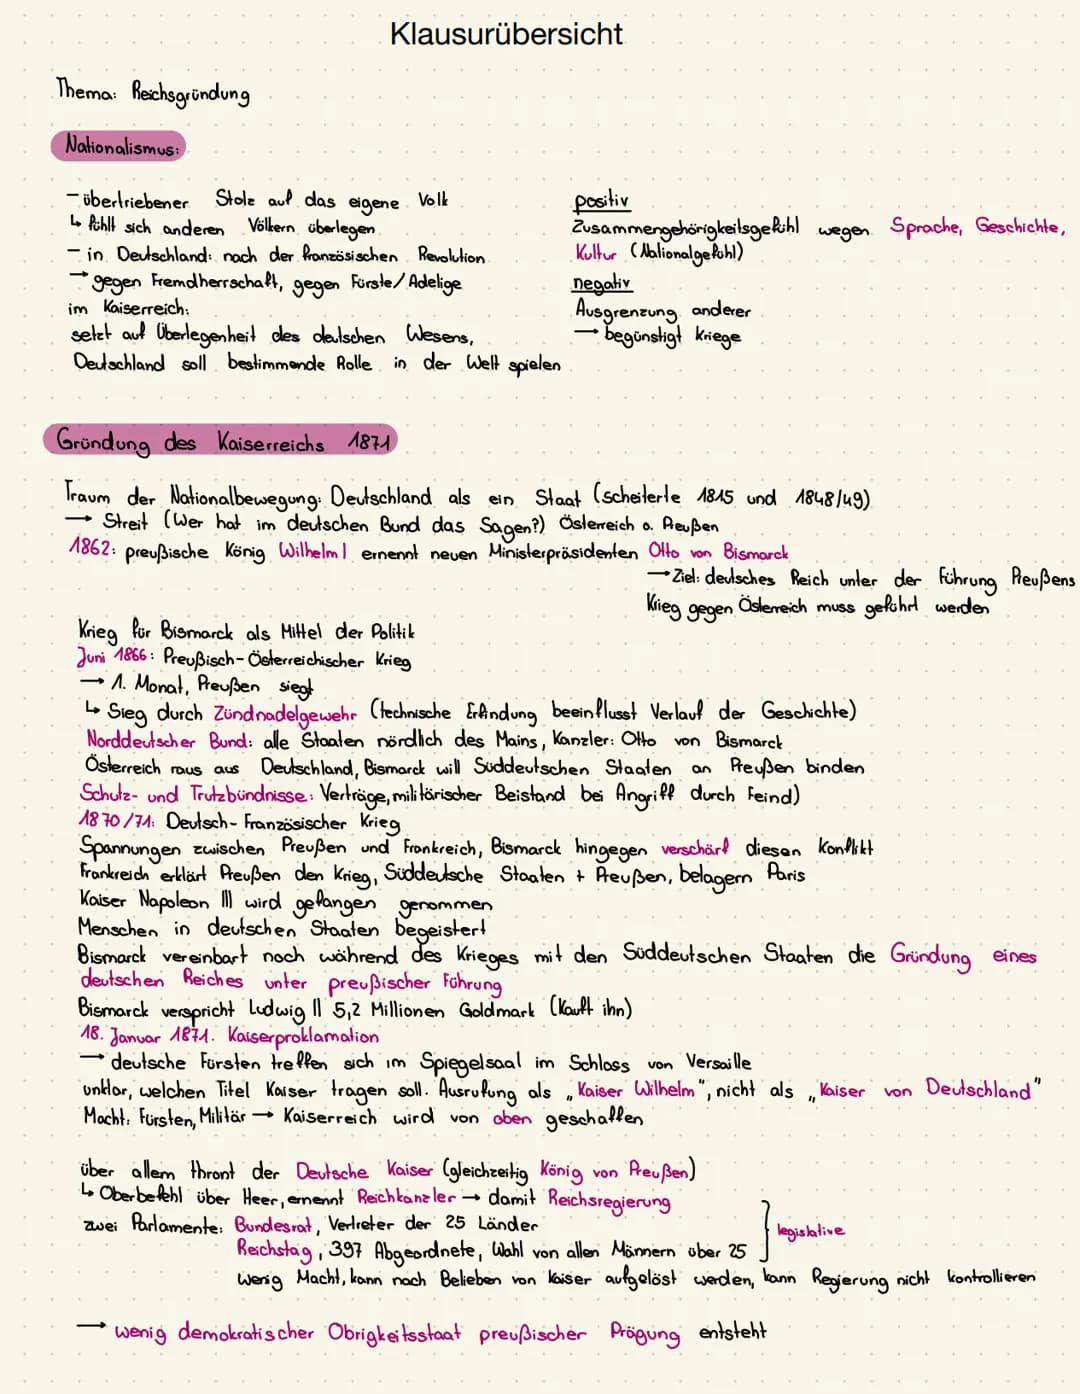 Klausurübersicht
Thema: Reichsgründung
Nationalismus:
- übertriebener Stolz auf das eigene Volk
↳ fühlt sich anderen Völkern überlegen
- in Deutschland: nach der französischen Revolution
→ gegen Fremdherrschaft, gegen Fürste/Adelige
im Kaiserreich:
setzt auf Überlegenheit des deutschen Wesens,
Deutschland soll bestimmende Rolle in der Welt spielen
positiv
Zusammengehörigkeitsgefühl wegen Sprache, Geschichte,
Kultur (Nationalgefühl)
negativ
Ausgrenzung anderer
→ begünstigt Kriege
Gründung des Kaiserreichs 1871
Traum der Nationalbewegung: Deutschland als ein Staat (scheiterte 1815 und 1848/49)
→ Streit (Wer hat im deutschen Bund das Sagen?) Österreich o. Preußen
1862: preußische König Wilhelm I ernennt neuen Ministerpräsidenten Otto von Bismarck
→ Ziel: deutsches Reich unter der Führung Preußens
Krieg gegen Österreich muss geführt werden
Krieg für Bismarck als Mittel der Politik
Juni 1866: Preußisch-Österreichischer Krieg
→ 1. Monat, Preußen siegt
↳ Sieg durch Zündnadelgewehr (technische Erfindung beeinflusst Verlauf der Geschichte)
Norddeutscher Bund: alle Staaten nördlich des Mains, Kanzler: Otto von Bismarck
Österreich raus aus Deutschland, Bismarck will Süddeutschen Staaten an Preußen binden
Schutz- und Trutzbündnisse: Verträge, militärischer Beistand bei Angriff durch Feind)
1870/71: Deutsch-Französischer Krieg
Spannungen zwischen Preußen und Frankreich, Bismarck hingegen verschärf diesen Konflikt
Frankreich erklärt Preußen den Krieg, Süddeutsche Staaten + Preußen, belagern Paris
Kaiser Napoleon III wird gefangen genommen
Menschen in deutschen Staaten begeistert
Bismarck vereinbart noch während des Krieges mit den Süddeutschen Staaten die Gründung eines
deutschen Reiches unter preußischer Führung
Bismarck verspricht Ludwig II 5,2 Millionen Goldmark (Kauft ihn)
18. Januar 1871. Kaiserproklamation
→ deutsche Fürsten treffen sich im Spiegelsaal im Schloss von Versaille
unklar, welchen Titel Kaiser tragen soll. Ausrufung als „Kaiser Wilhelm", nicht als „Kaiser von Deutschland"
Macht: Fürsten, Militär → Kaiserreich wird von oben geschaffen
über allem thront der Deutsche Kaiser (gleichzeitig König von Preußen)
↳ Oberbefehl über Heer, ernennt Reichkanzler → damit Reichsregierung
zwei Parlamente: Bundesrat, Vertreter der 25 Länder
Reichstag, 397 Abgeordnete, Wahl von allen Männern über 25
legislative
wenig Macht, kann nach Belieben von Kaiser aufgelöst werden, kann Regierung nicht kontrollieren
→ wenig demokratischer Obrigkeitsstaat preußischer Prägung entsteht